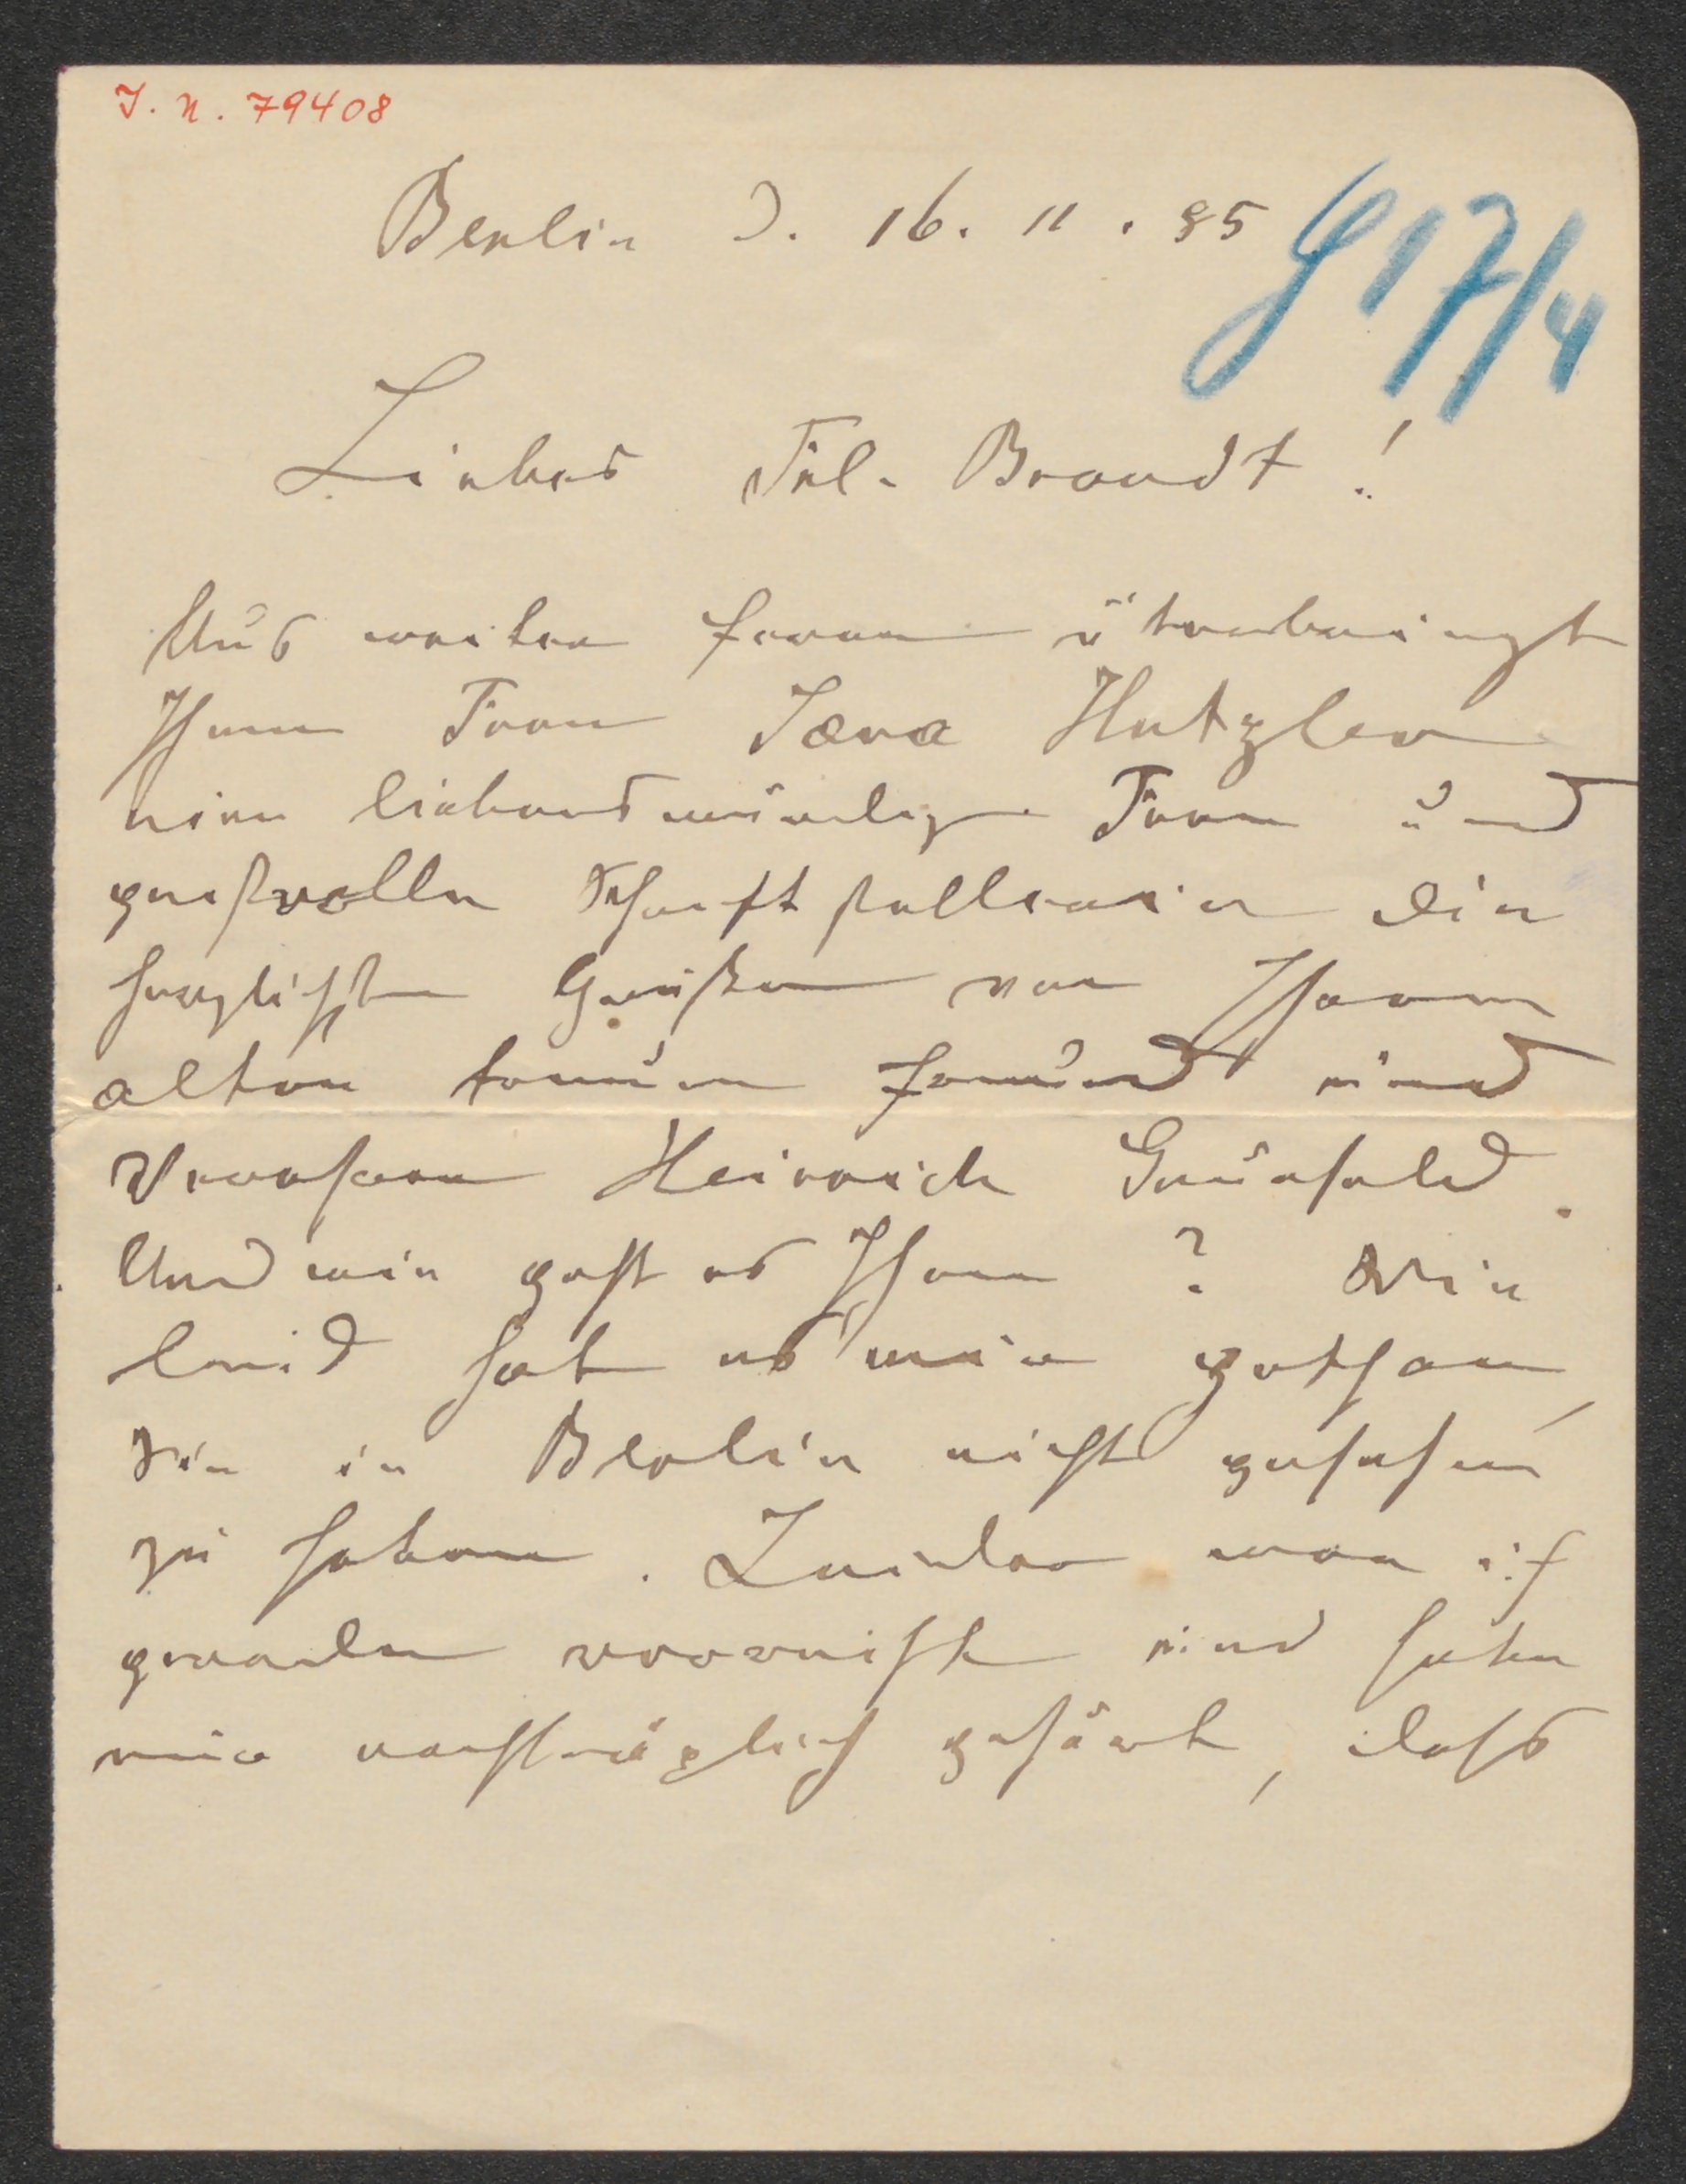 I. N. 79408
Berlin d. 16. 11. 95
G 17/4
Liebes Frl. Brandt!
Aus weiter Ferne überbringt
Ihnen Frau Sara Hutzler
eine liebenswürdige Frau und
geistvolle Schriftstellerin die
herzlichsten Grüßen von Ihrem
alten treuen Freund und
Verehrer Heinrich Grünfeld.
Und wie geht es Ihnen? Wie
leid hat es mir gethan,
Sie in Berlin nicht gesehen
zu haben. Leider war ich
gerade verreist und habe
nur nachträglich gehört, dass